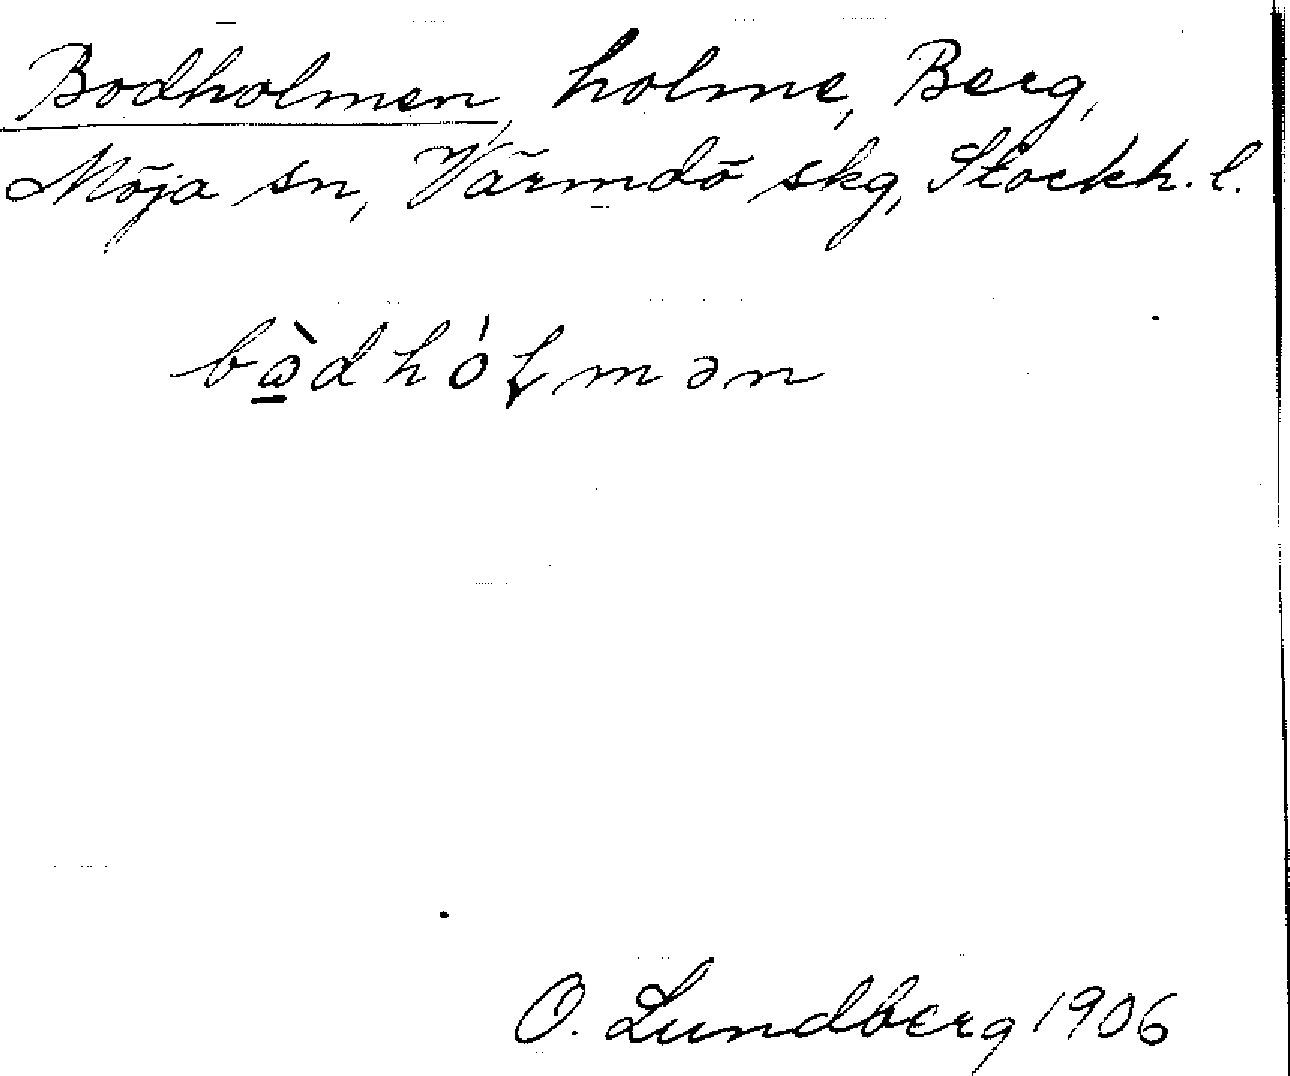 Bodholmen, holme, Berg,
Möja sn, Värmdö skg, Stockh. l.
bὼ̠dhóɫmən
O. Lundberg 1906